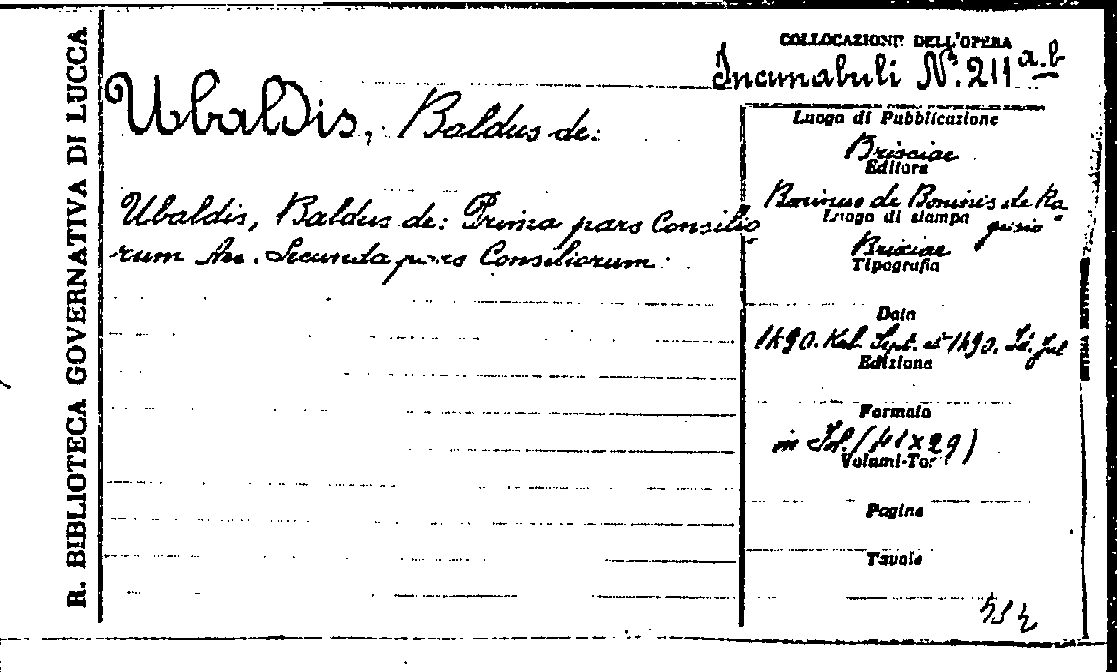 R. BIBLIOTECA GOVERNATIVA DI LUCCA
COLLOCAZIONE DELL'OPERA
Incunabuli N.º 211 a.b
Ubaldis, Baldus de:
Ubaldis, Baldus de: Prima pars Consilio
rum An. Secunda pars Consiliorum.
Luogo di Pubblicazione
Brisciae
Editore
Boninus de Boninis de Ra
gusio
Luogo di stampa
Brisciae
Tipografia
Data
1490. Kal. Sept. et 1490. Id. Jul
Edizione
Formato
in Fol. (41x29)
Volumi-To:
Pagine
Tavole